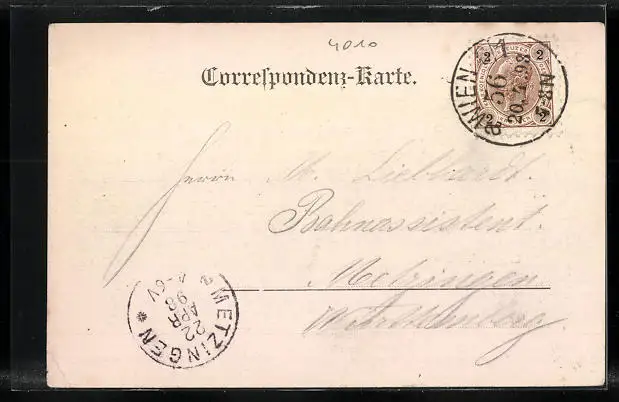 4010
Correspondenz-Karte.
2 2
2 2
WIEN 1
56
20.4.98
Herrn M. Liebhardt.
Bahnassistent.
Metzingen.
Württemberg.
METZINGEN
22 APR
98